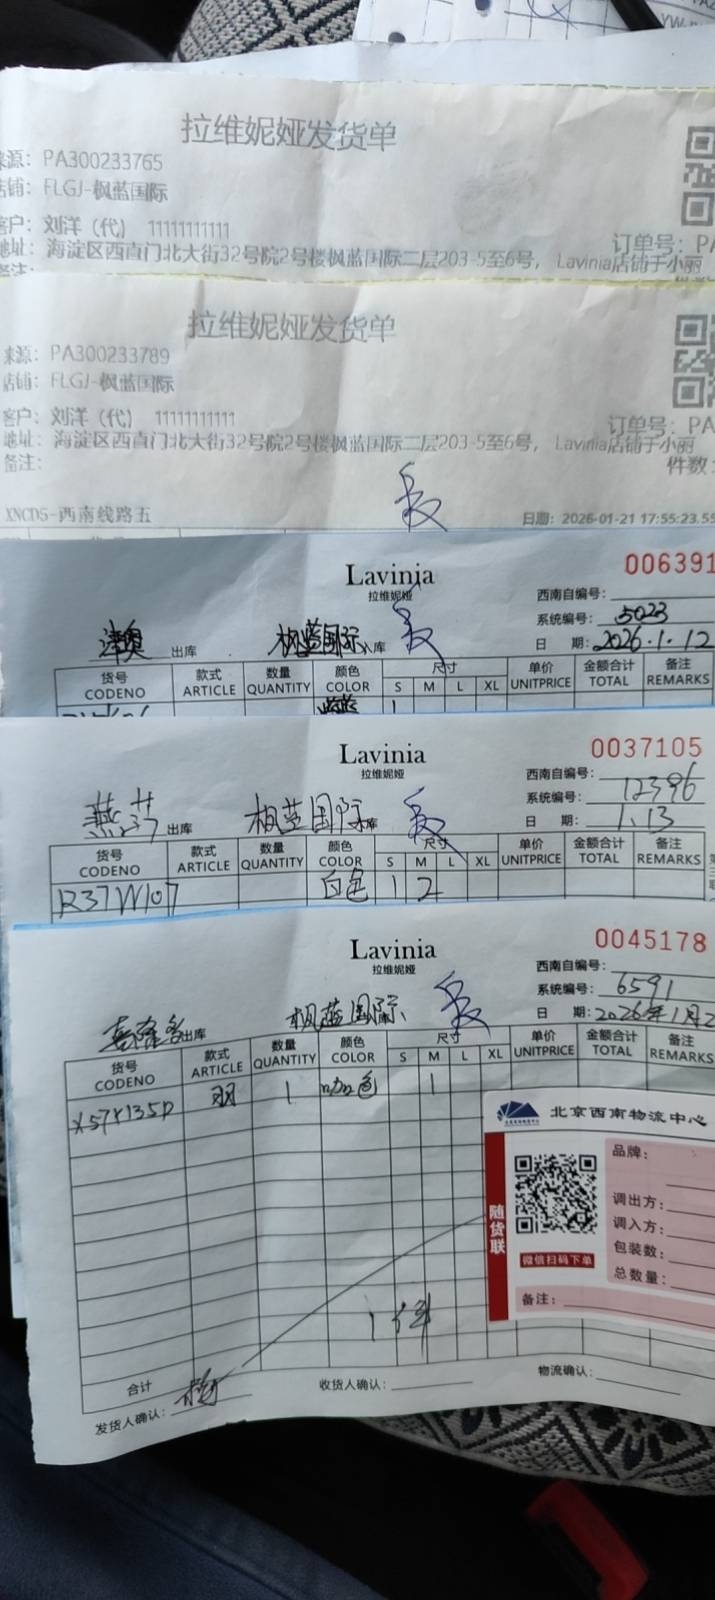 拉维妮娅发货单
来源: PA300233765
店铺: FLGJ-枫蓝国际
客户: 刘洋（代） 11111111111
订单号: PA
地址: 海淀区西直门北大街32号院2号楼枫蓝国际二层203-5至6号， Lavinia店铺于小丽
备注:
拉维妮娅发货单
来源: PA300233789
店铺: FLGJ-枫蓝国际
客户: 刘洋（代） 11111111111
订单号: PA
地址: 海淀区西直门北大街32号院2号楼枫蓝国际二层203-5至6号， Lavinia店铺于小丽
备注:
件数:
XNCD5-西南线路五
日期: 2026-01-21 17:55:23.55
006391
Lavinia
拉维妮娅
西南自编号:
系统编号: 5023
津奥 出库 枫蓝国际 入库
日 期: 2026.1.12
货号 款式 数量 颜色 尺寸 单价 金额合计 备注
CODENO ARTICLE QUANTITY COLOR S M L XL UNITPRICE TOTAL REMARKS
1
0037105
Lavinia
拉维妮娅
西南自编号:
系统编号: 12396
燕莎 出库 枫蓝国际 库
日 期: 1.13
货号 款式 数量 颜色 尺寸 单价 金额合计 备注
CODENO ARTICLE QUANTITY COLOR S M L XL UNITPRICE TOTAL REMARKS
R37W107 白色 1 2
0045178
Lavinia
拉维妮娅
西南自编号:
系统编号: 6591
喜隆多 出库 枫蓝国际
日 期: 2026年1月2
货号 款式 数量 颜色 尺寸 单价 金额合计 备注
CODENO ARTICLE QUANTITY COLOR S M L XL UNITPRICE TOTAL REMARKS
X57Y135D 羽 1 咖色 1
北京西南物流中心
品牌:
调出方:
调入方:
包装数:
总数量:
随货联
微信扫码下单
备注:
1件
合计
发货人确认: 收货人确认: 物流确认: